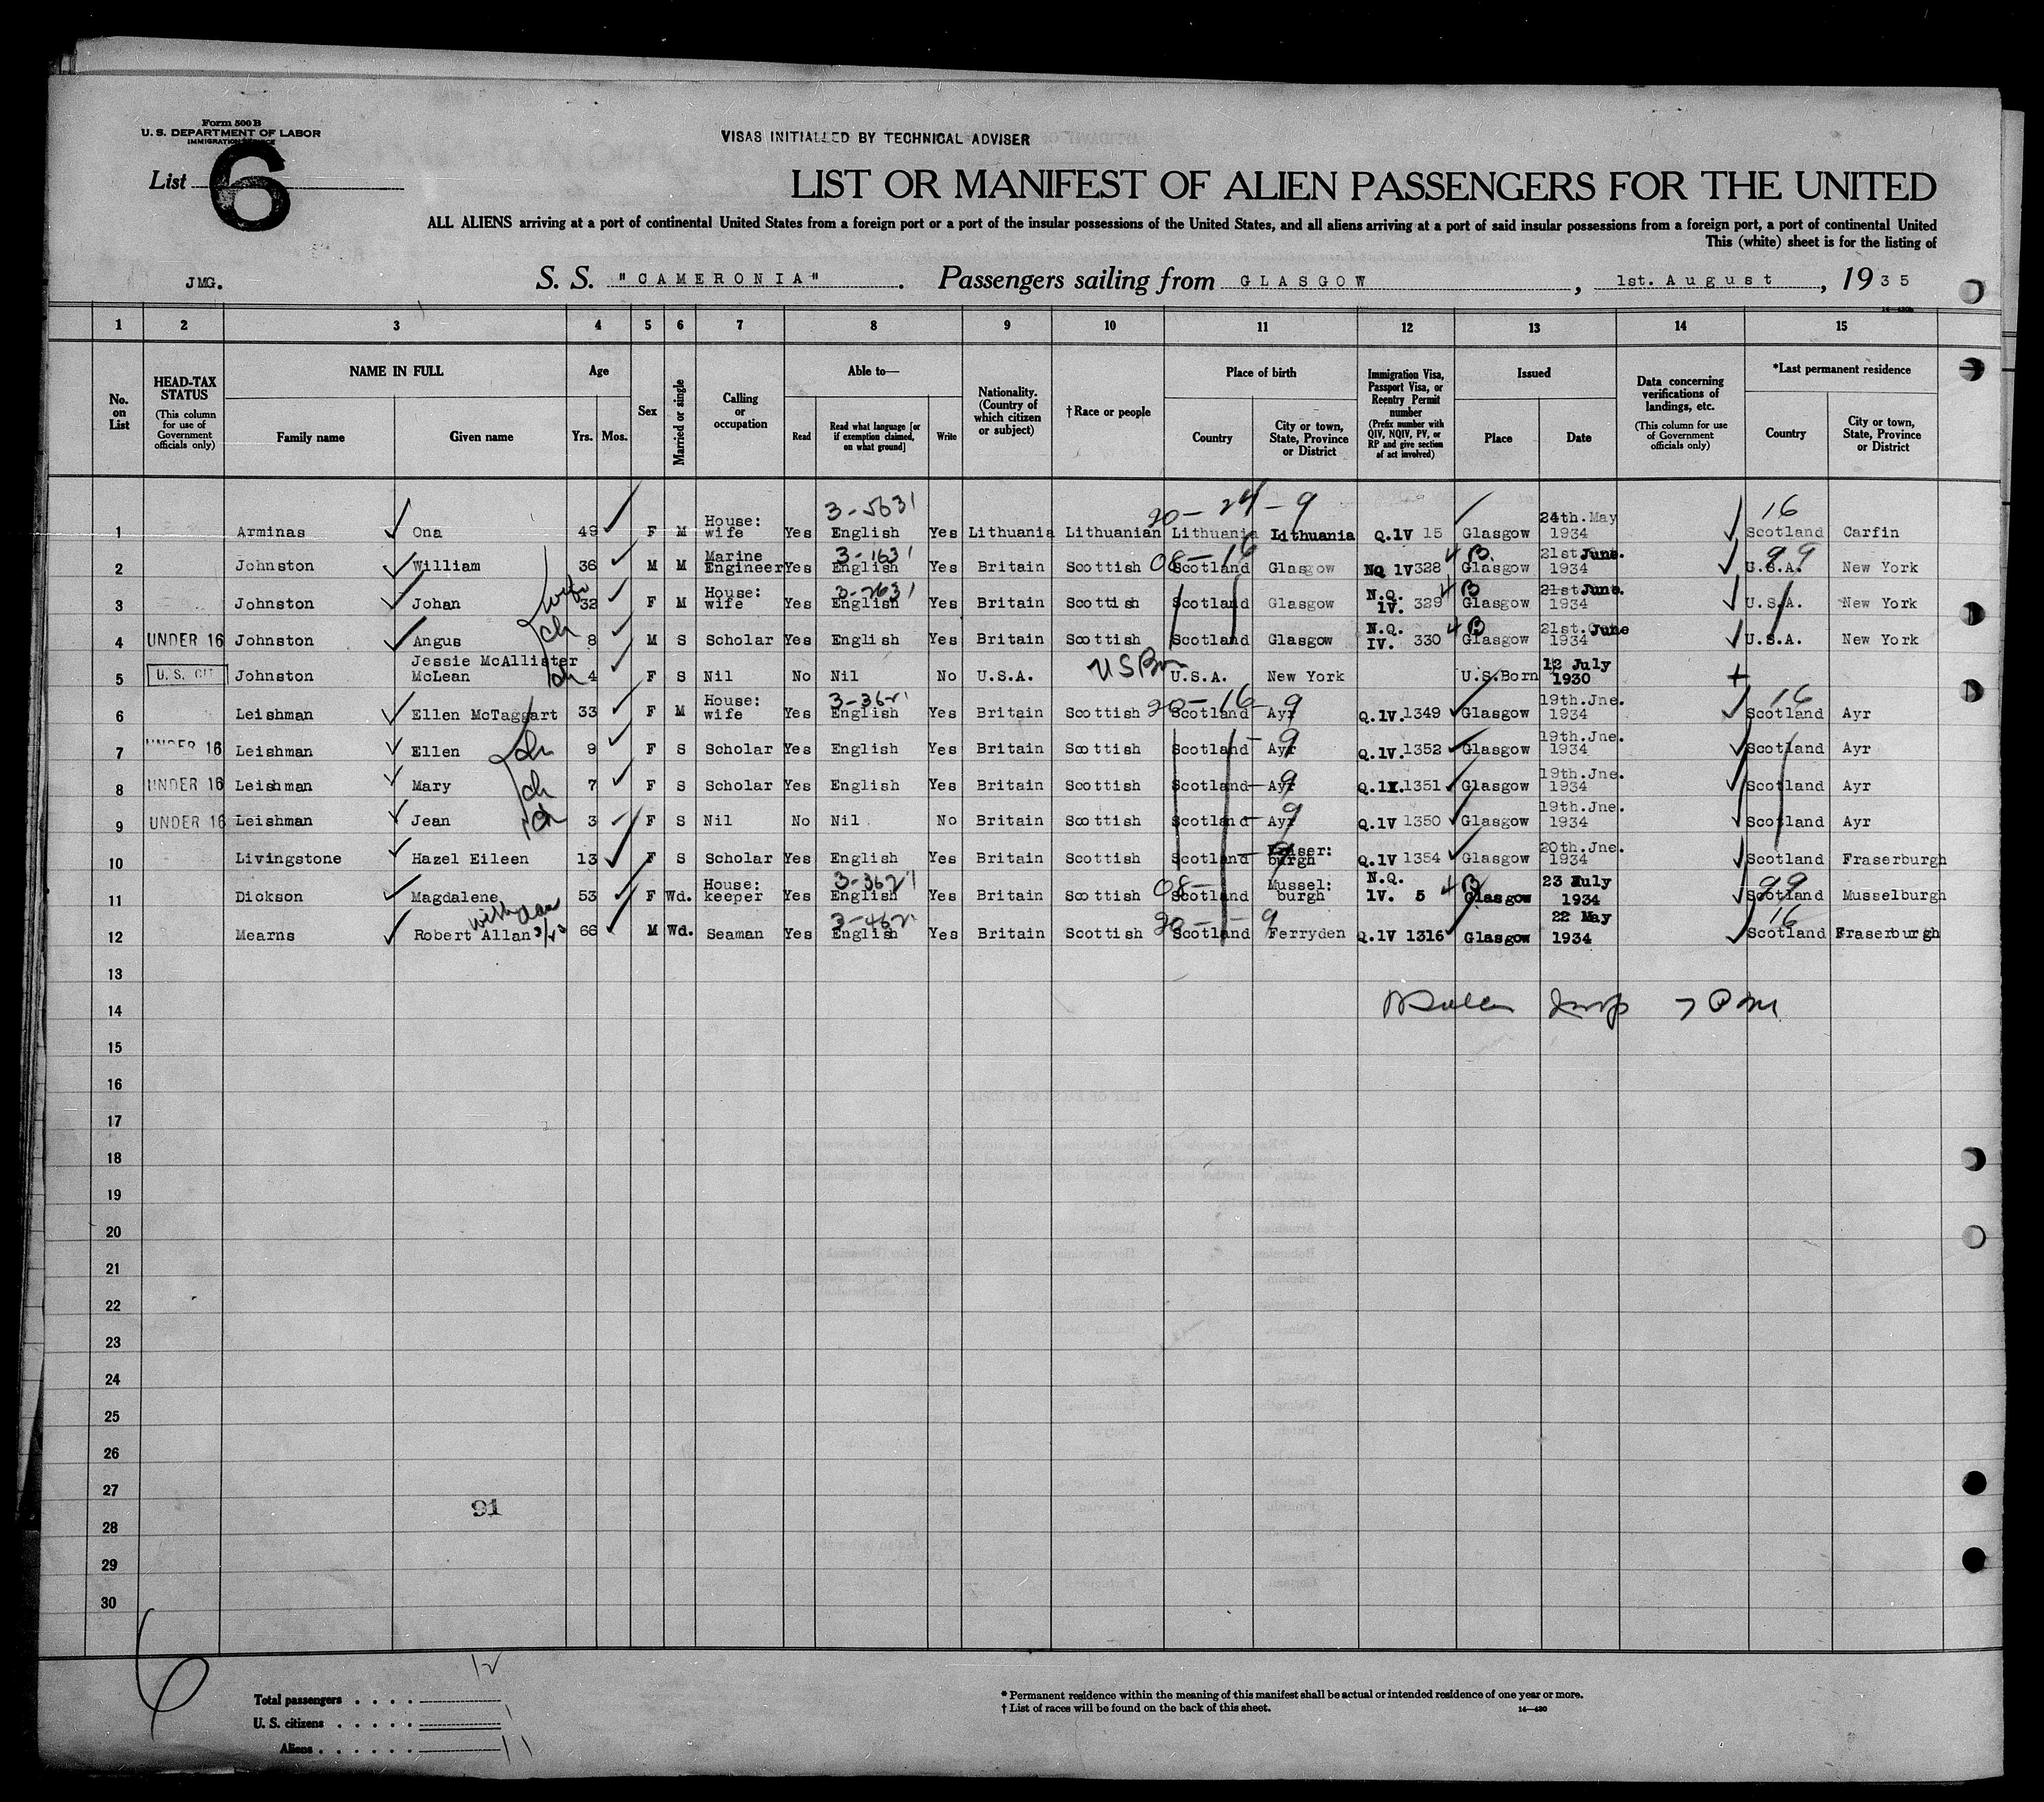 Form 500 B
U. S. DEPARTMENT OF LABOR
IMMIGRATION SERVICE
VISAS INITIALLED BY TECHNICAL ADVISER
List 6
LIST OR MANIFEST OF ALIEN PASSENGERS FOR THE UNITED
ALL ALIENS arriving at a port of continental United States from a foreign port or a port of the insular possessions of the United States, and all aliens arriving at a port of said insular possessions from a foreign port, a port of continental United
This (white) sheet is for the listing of
JMG. S. S. "CAMERONIA". Passengers sailing from GLASGOW, 1st. August, 1935
1 2 3 4 5 6 7 8 9 10 11 12 13 14 15
No. on List
HEAD-TAX STATUS (This column for use of Government officials only)
NAME IN FULL Family name Given name
Age Yrs. Mos.
Sex
Married or single
Calling or occupation
Able to— Read Read what language [or if exemption claimed, on what ground] Write
Nationality. (Country of which citizen or subject)
† Race or people
Place of birth Country City or town, State, Province or District
Immigration Visa, Passport Visa, or Reentry Permit number (Prefix number with QIV, NQIV, PV, or RP and give section of act involved)
Issued Place Date
Data concerning verifications of landings, etc. (This column for use of Government officials only)
*Last permanent residence Country City or town, State, Province or District
3-5631 20-24-9 16
1 Arminas Ona 49 F M House: wife Yes English Yes Lithuania Lithuanian Lithuania Lithuania Q.1V 15 Glasgow 24th. May 1934 Scotland Carfin
3-1631 08-16 4 B. 99
2 Johnston William 36 M M Marine Engineer Yes English Yes Britain Scottish Scotland Glasgow NQ 1V 328 Glasgow 21st June. 1934 U.S.A. New York
wife 3-2631 4 B
3 Johnston Johan 32 F M House: wife Yes English Yes Britain Scottish Scotland Glasgow N.Q. 1V. 329 Glasgow 21st June. 1934 U.S.A. New York
ch 4 B
4 UNDER 16 Johnston Angus 8 M S Scholar Yes English Yes Britain Scottish Scotland Glasgow N.Q. IV. 330 Glasgow 21st. June 1934 U.S.A. New York
ch US Bn
5 U. S. CIT Johnston Jessie McAllister McLean 4 F S Nil No Nil No U.S.A. U.S.A. New York U.S.Born 12 July 1930
3-362 20-16-9 16
6 Leishman Ellen McTaggart 33 F M House: wife Yes English Yes Britain Scottish Scotland Ayr Q.1V.1349 Glasgow 19th.Jne. 1934 Scotland Ayr
ch 9
7 UNDER 16 Leishman Ellen 9 F S Scholar Yes English Yes Britain Scottish Scotland Ayr Q.1V.1352 Glasgow 19th.Jne. 1934 Scotland Ayr
ch 9
8 UNDER 16 Leishman Mary 7 F S Scholar Yes English Yes Britain Scottish Scotland Ayr Q.1V.1351 Glasgow 19th.Jne. 1934 Scotland Ayr
ch 9
9 UNDER 16 Leishman Jean 3 F S Nil No Nil No Britain Scottish Scotland Ayr Q.1V 1350 Glasgow 19th.Jne. 1934 Scotland Ayr
10 Livingstone Hazel Eileen 13 F S Scholar Yes English Yes Britain Scottish Scotland Fraser: burgh Q.1V 1354 Glasgow 20th.Jne. 1934 Scotland Fraserburgh
3-3627 08- 4 B 99
11 Dickson Magdalene 53 F Wd. House: keeper Yes English Yes Britain Scottish Scotland Mussel: burgh N.Q. 1V. 5 Glasgow 23 July 1934 Scotland Musselburgh
3-462 20--9 16
12 Mearns Robert Allan 66 M Wd. Seaman Yes English Yes Britain Scottish Scotland Ferryden Q.1V 1316 Glasgow 22 May 1934 Scotland Fraserburgh
13
14
15
16
17
18
19
20
21
22
23
24
25
26
27
91
28
29
30
6
12
Total passengers . . . .
U. S. citizens . . . . . 1
Aliens . . . . . . 11
* Permanent residence within the meaning of this manifest shall be actual or intended residence of one year or more.
† List of races will be found on the back of this sheet.
14—430